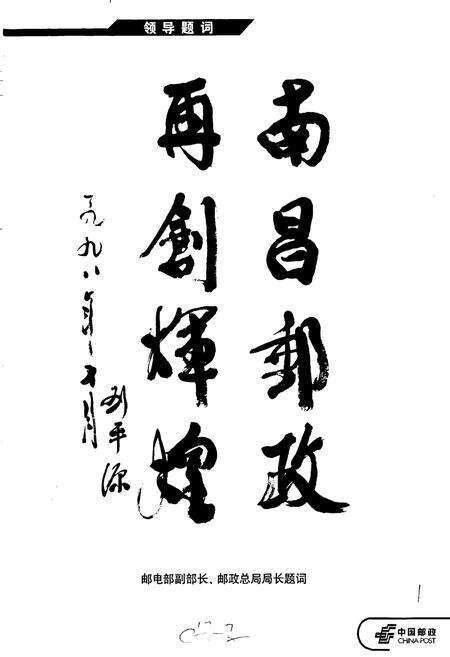 领导题词
南昌郵政
再創輝煌
一九九八年十月
刘平源
邮电部副部长、邮政总局局长题词
中国邮政
CHINA POST